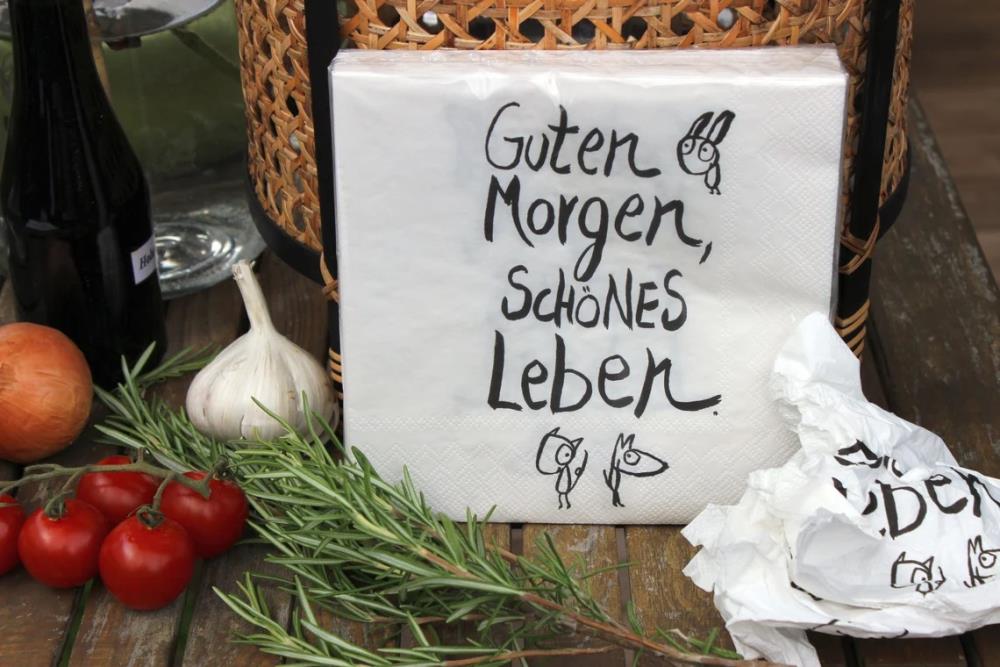 Guten
Morgen,
SCHÖNES
Leben.